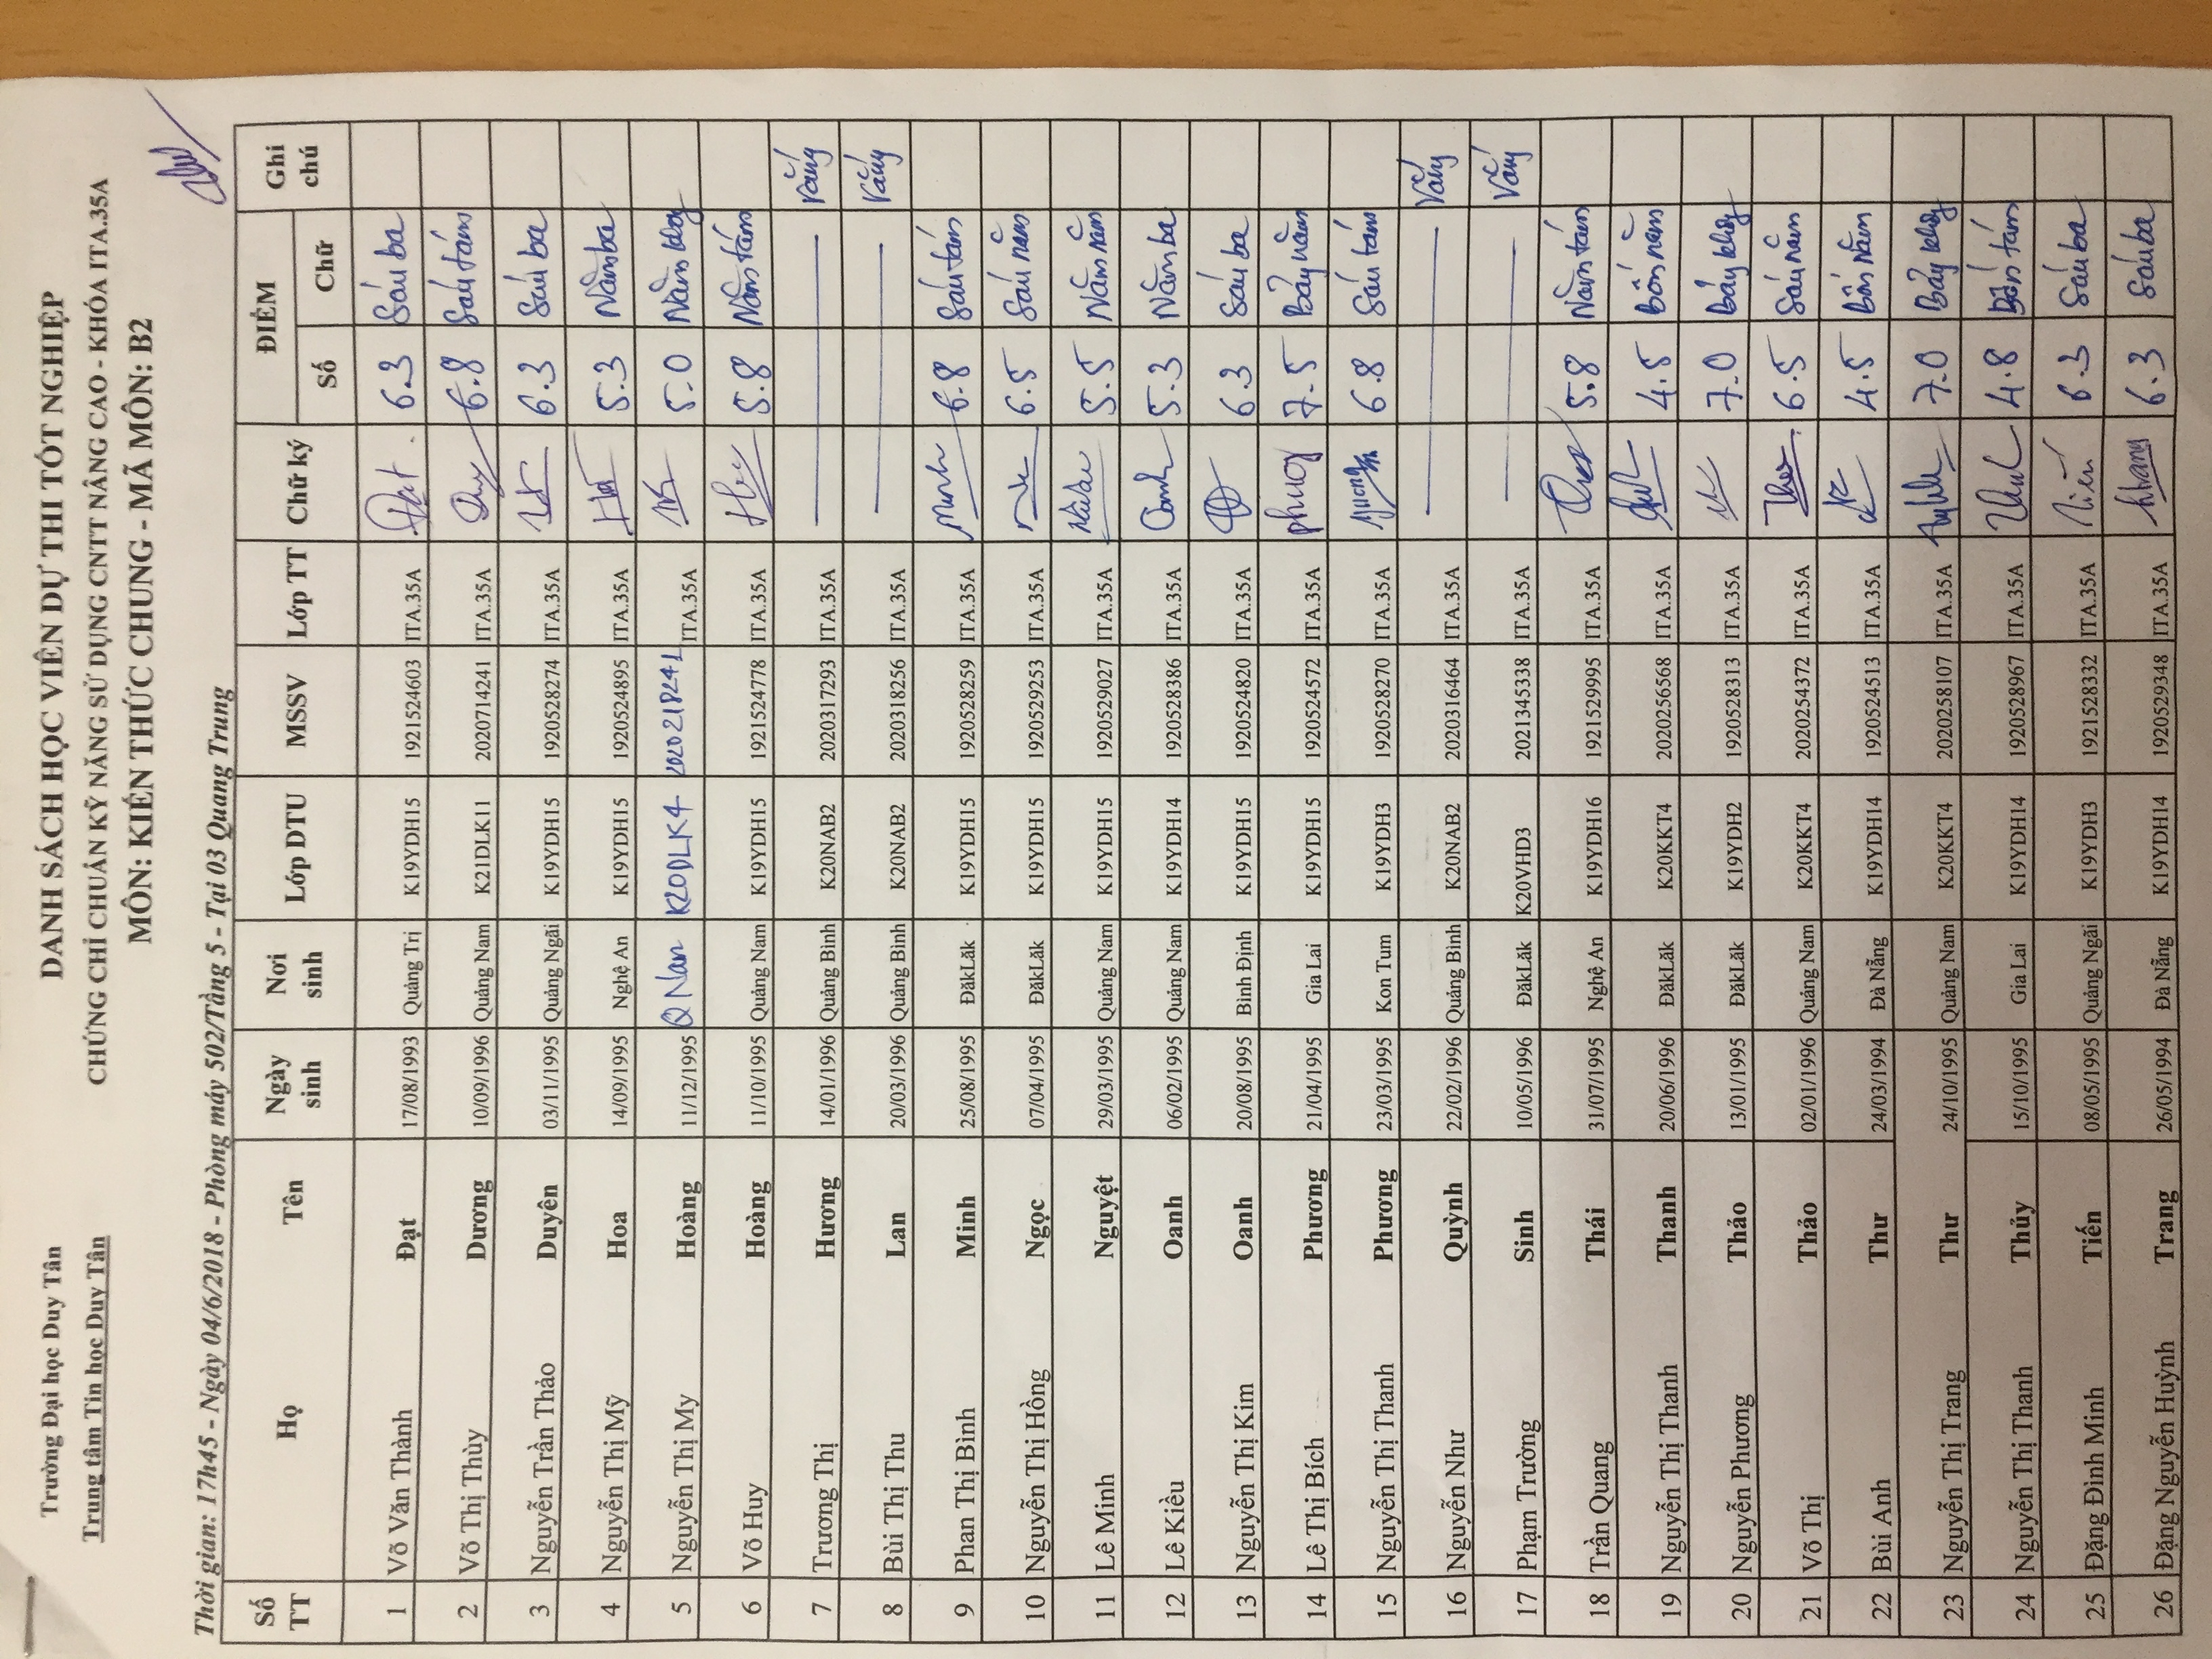 Trường Đại học Duy Tân
Trung tâm Tin học Duy Tân
DANH SÁCH HỌC VIÊN DỰ THI TỐT NGHIỆP
CHỨNG CHỈ CHUẨN KỸ NĂNG SỬ DỤNG CNTT NÂNG CAO - KHÓA ITA.35A
MÔN: KIẾN THỨC CHUNG - MÃ MÔN: B2
Thời gian: 17h45 - Ngày 04/6/2018 - Phòng máy 502/Tầng 5 - Tại 03 Quang Trung
Số TT Họ Tên Ngày sinh Nơi sinh Lớp DTU MSSV Lớp TT Chữ ký ĐIỂM Ghi chú
Số Chữ
1 Võ Văn Thành Đạt 17/08/1993 Quảng Trị K19YDH15 1921524603 ITA.35A Đạt 6.3 Sáu ba
2 Võ Thị Thùy Dương 10/09/1996 Quảng Nam K21DLK11 2020714241 ITA.35A 6.8 Sáu tám
3 Nguyễn Trần Thảo Duyên 03/11/1995 Quảng Ngãi K19YDH15 1920528274 ITA.35A 6.3 Sáu ba
4 Nguyễn Thị Mỹ Hoa 14/09/1995 Nghệ An K19YDH15 1920524895 ITA.35A 5.3 Năm ba
5 Nguyễn Thị My Hoàng 11/12/1995 Q Nam K20DLK4 2020218241 ITA.35A 5.0 Năm không
6 Võ Huy Hoàng 11/10/1995 Quảng Nam K19YDH15 1921524778 ITA.35A Huy 5.8 Năm tám
7 Trương Thị Hương 14/01/1996 Quảng Bình K20NAB2 2020317293 ITA.35A Vắng
8 Bùi Thị Thu Lan 20/03/1996 Quảng Bình K20NAB2 2020318256 ITA.35A Vắng
9 Phan Thị Bình Minh 25/08/1995 ĐăkLăk K19YDH15 1920528259 ITA.35A Minh 6.8 Sáu tám
10 Nguyễn Thị Hồng Ngọc 07/04/1995 ĐăkLăk K19YDH15 1920529253 ITA.35A 6.5 Sáu năm
11 Lê Minh Nguyệt 29/03/1995 Quảng Nam K19YDH15 1920529027 ITA.35A 5.5 Năm năm
12 Lê Kiều Oanh 06/02/1995 Quảng Nam K19YDH14 1920528386 ITA.35A Oanh 5.3 Năm ba
13 Nguyễn Thị Kim Oanh 20/08/1995 Bình Định K19YDH15 1920524820 ITA.35A 6.3 Sáu ba
14 Lê Thị Bích Phương 21/04/1995 Gia Lai K19YDH15 1920524572 ITA.35A phuong 7.5 Bảy năm
15 Nguyễn Thị Thanh Phương 23/03/1995 Kon Tum K19YDH3 1920528270 ITA.35A 6.8 Sáu tám
16 Nguyễn Như Quỳnh 22/02/1996 Quảng Bình K20NAB2 2020316464 ITA.35A Vắng
17 Phạm Trường Sinh 10/05/1996 ĐăkLăk K20VHD3 2021345338 ITA.35A Vắng
18 Trần Quang Thái 31/07/1995 Nghệ An K19YDH16 1921529995 ITA.35A 5.8 Năm tám
19 Nguyễn Thị Thanh Thanh 20/06/1996 ĐăkLăk K20KKT4 2020256568 ITA.35A 4.5 Bốn năm
20 Nguyễn Phương Thảo 13/01/1995 ĐăkLăk K19YDH2 1920528313 ITA.35A 7.0 Bảy không
21 Võ Thị Thảo 02/01/1996 Quảng Nam K20KKT4 2020254372 ITA.35A 6.5 Sáu năm
22 Bùi Anh Thư 24/03/1994 Đà Nẵng K19YDH14 1920524513 ITA.35A 4.5 Bốn năm
23 Nguyễn Thị Trang Thư 24/10/1995 Quảng Nam K20KKT4 2020258107 ITA.35A 7.0 Bảy không
24 Nguyễn Thị Thanh Thủy 15/10/1995 Gia Lai K19YDH14 1920528967 ITA.35A 4.8 Bốn tám
25 Đặng Đình Minh Tiến 08/05/1995 Quảng Ngãi K19YDH3 1921528332 ITA.35A Tiến 6.3 Sáu ba
26 Đặng Nguyễn Huỳnh Trang 26/05/1994 Đà Nẵng K19YDH14 1920529348 ITA.35A 6.3 Sáu ba